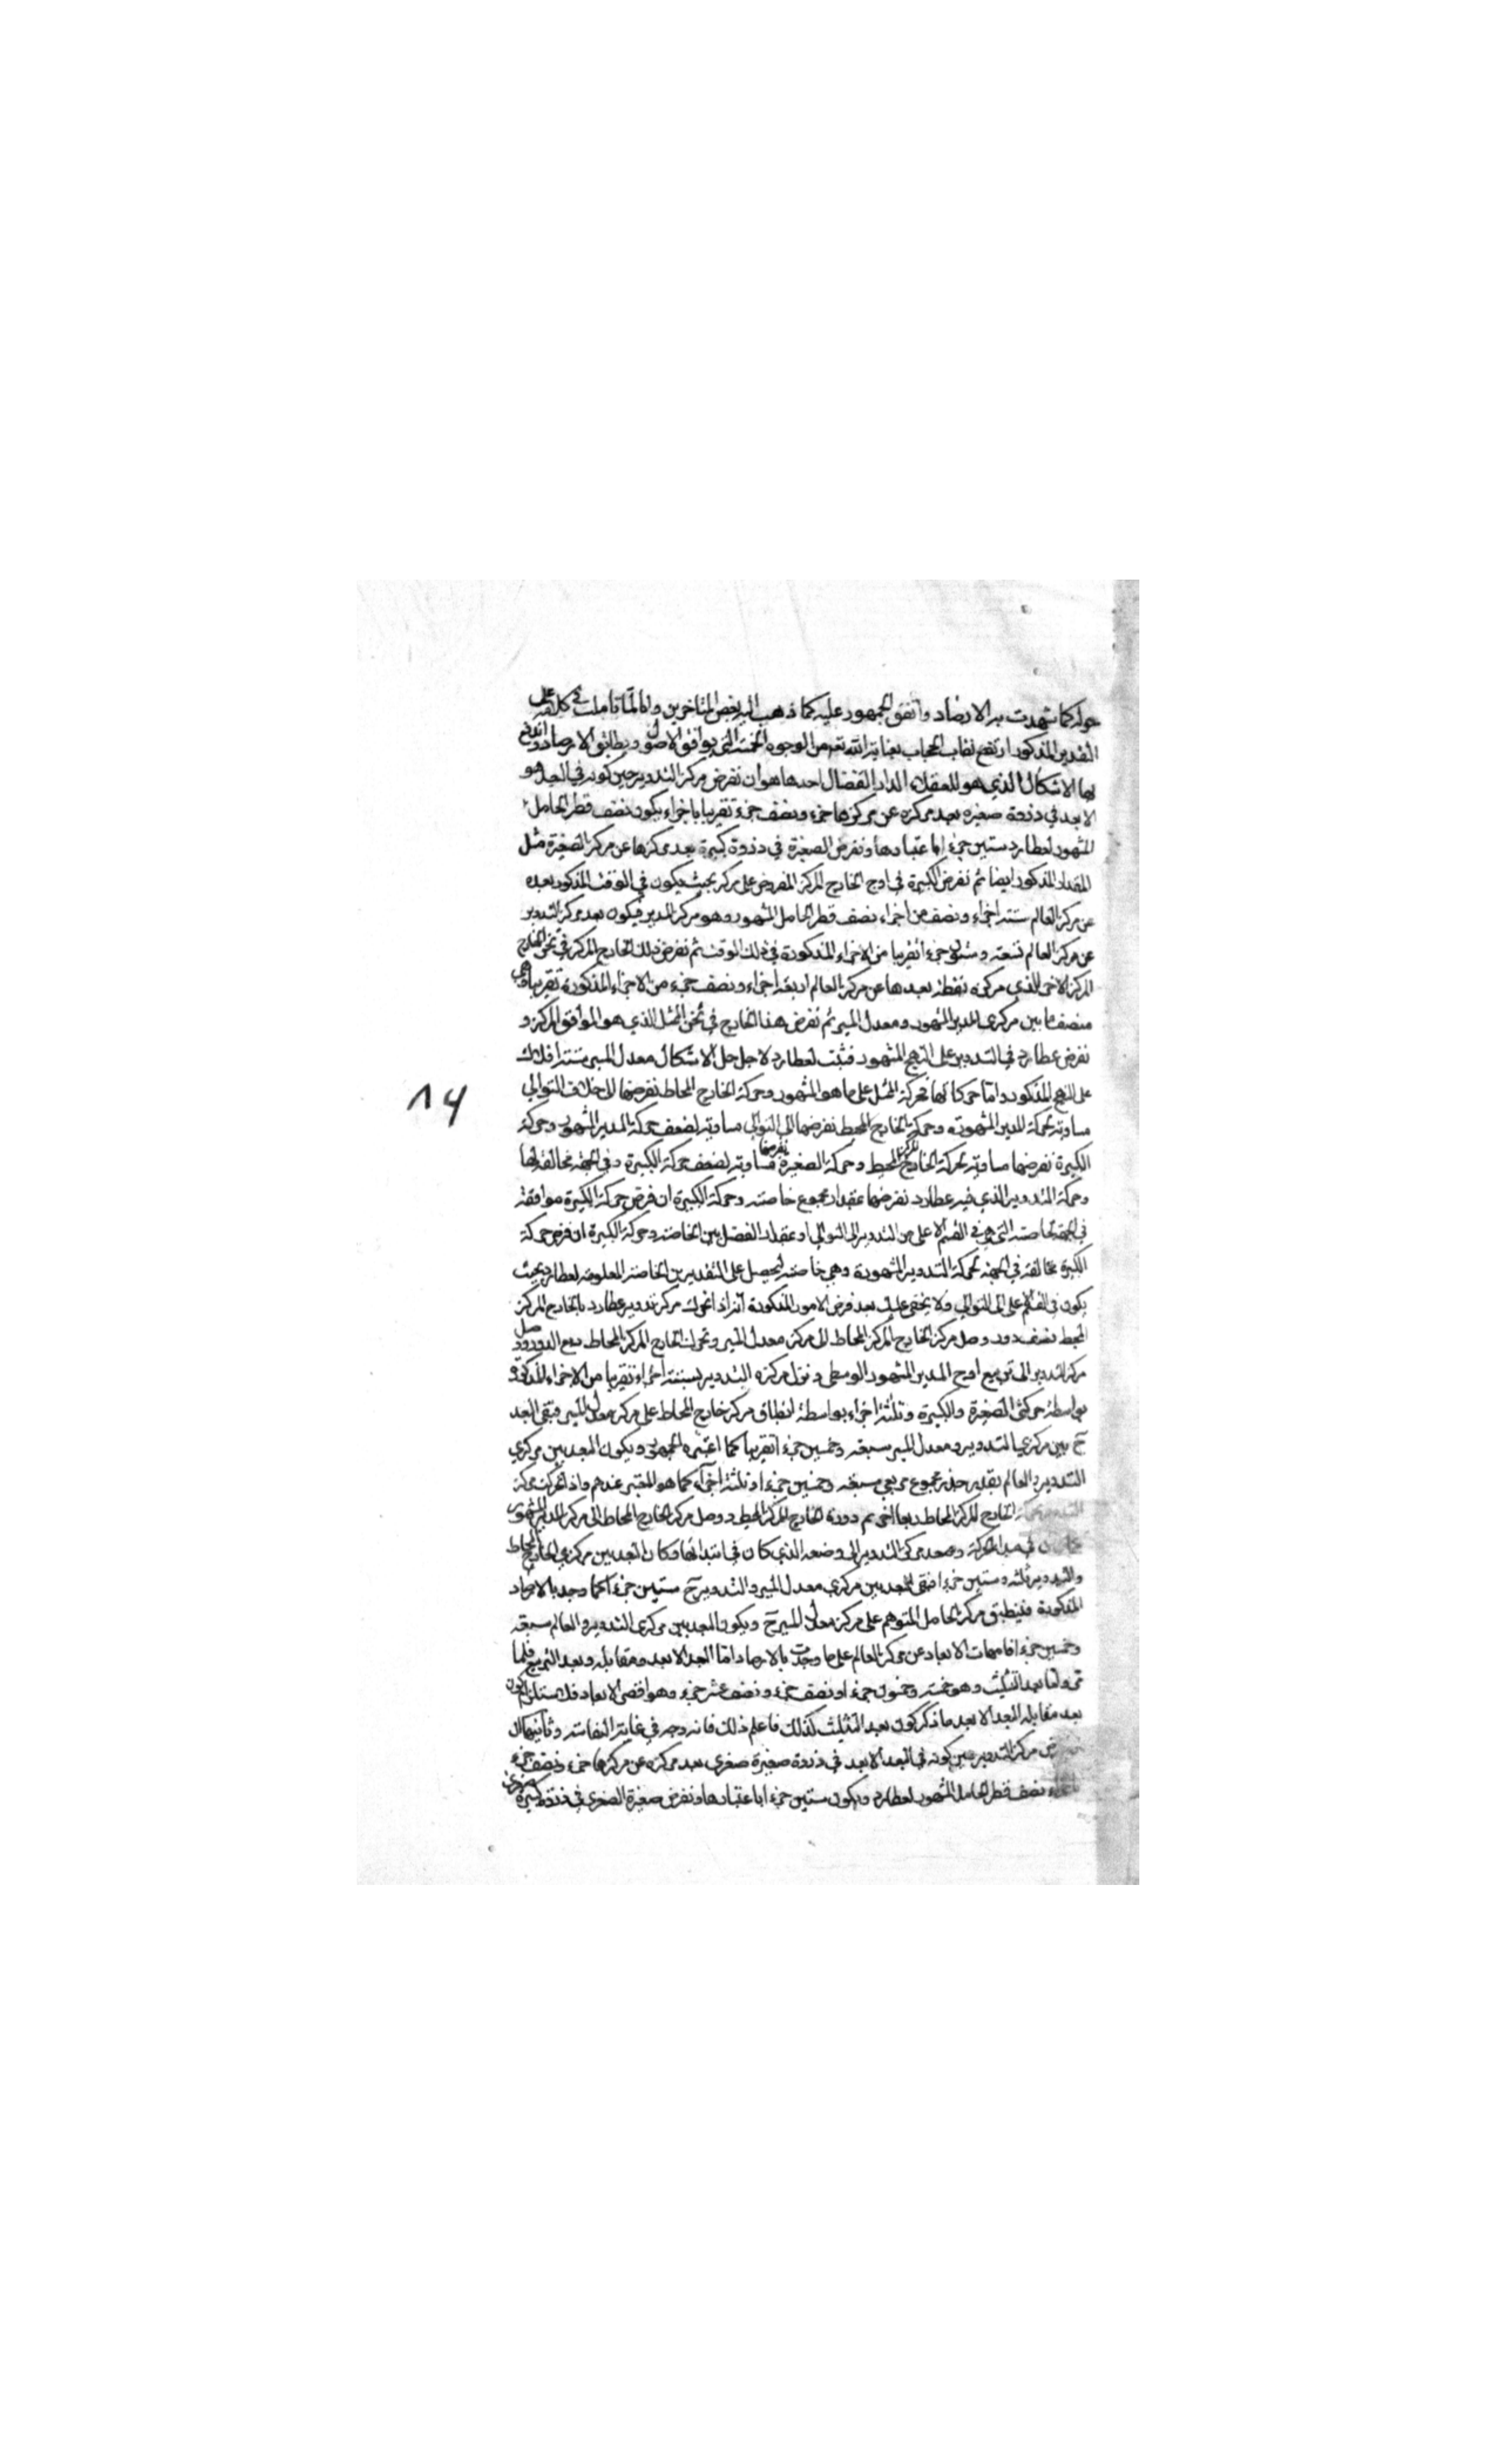 حوله كما شهدت به الارصاد واتفق الجمهور عليه كما ذهب اليه بعض المتاخرين وانا لما تاملت في كل فقه على
التقدير المذكور ارتفع نقاب الحجاب بعناية الله تعم من الوجوه الخمسة التي يوافق الاصول ويطابق الارصاد واندفع
بها الاشكال الذي هو للعقلاء الداء العضال احدها هو ان نفرض مركز التدوير حين كونه في البعد
الابعد في ذروة صغيرة بعد مركزه عن مركزها جزء ونصف جزء تقريبا باجزاء يكون نصف قطر الحامل
المشهور لعطارد ستين جزءا باعتبارها ونفرض الصغيرة في ذروة كبيرة بعد مركزها عن مركز الصغيرة مثل
المقدار المذكور ايضا ثم نفرض الكبيرة في اوج الخارج المركز المفروض على مركز بحيث يكون في الوقت المذكور بعده
عن مركز العالم ستة اجزاء ونصف من اجزاء نصف قطر الحامل المشهور وهو مركز المدير فيكون بعد مركز التدوير
عن مركز العالم تسعة وستون جزءا تقريبا من الاجزاء المذكورة في ذلك الوقت ثم نفرض ذلك الخارج المركز في ثخن الخارج
المركز الاخر الذي مركزه نقطة بعدها عن مركز العالم اربعة اجزاء ونصف جزء من الاجزاء المذكورة تقريبا وهي
منصف ما بين مركزي المدير المشهور ومعدل المسير ثم نفرض هذا الخارج في ثخن الممثل الذي هو الموافق المركز و
نفرض عطارد في التدوير على النهج المشهور فثبت لعطارد لاجل حل الاشكال معدل المسير ستة افلاك
على النهج المذكور واما حركاتها فحركة الممثل على ما هو المشهور وحركة الخارج المحاط نفرضها الى خلاف التوالي
مساوية لحركة المدير المشهورة وحركة الخارج المحيط نفرضها الى التوالي مساوية لضعف حركة المدير المشهور وحركة
الكبيرة نفرضها مساوية لحركة الخارج المركز المحيط وحركة الصغيرة نفرضها مساوية لضعف حركة الكبيرة وفي الجهة مخالفة لها
وحركة التدوير الذي فيه عطارد نفرضها بمقدار مجموع خاصته وحركة الكبيرة ان فرض حركة الكبيرة موافقة
في الجهة لخاصته التي هي في القسم الاعلى من التدوير الى التوالي او بمقدار الفضل بين الخاصة وحركة الكبيرة ان فرض حركة
الكبيرة مخالفة في الجهة لحركة التدوير المشهورة وهي خاصته ليحصل على التقديرين الخاصة المعلومة لعطارد بحيث
يكون في القسم الاعلى الى التوالي ولا يخفى عليك بعد فرض الامور المذكورة انه اذا تحرك مركز تدوير عطارد بالخارج المركز
المحيط نصف دور وصل مركز الخارج المركز المحاط الى مركز معدل المسير وتحرك الخارج المركز المحاط ربع الدور ووصل
مركز التدوير الى تربيع اوج المدير المشهور الوسطى ونزل مركزه التدوير بستة اجزاء تقريبا من الاجزاء المذكورة
بواسطة حركتي الصغيرة والكبيرة وثلثة اجزاء بواسطة انطباق مركز خارج المحاط على مركز معدل المسير فبقي البعد
ح بين مركزي التدوير ومعدل المسير سبعة وخمسين جزءا تقريبا كما اعتبره الجمهور ويكون البعد بين مركزي
التدوير والعالم بقدر جذر مجموع مربعي سبعة وخمسين جزءا وثلثة اجزاء كما هو المعتبر عندهم واذا تحرك مركز
الخارج المركز المحاط ربعا اخر تم دورة الخارج المركز المحيط ووصل مركز الخارج المحاط الى مركز المدير المشهور
في مبدا الحركة وصعد مركز التدوير الى وضعه الذي كان في ابتدائها وكان البعد بين مركزي الخارج المحاط
والتدوير ثلثة وستين جزءا فبقي البعد بين مركزي معدل المسير والتدوير ح ستين جزءا كما وجد بالارصاد
المذكورة فينطبق مركز الحامل المتوهم على مركز معدل المسير ح ويكون البعد بين مركزي التدوير والعالم سبعة
وخمسين جزءا فامهات الابعاد عن مركز العالم على ما وجدت بالارصاد اما البعد الابعد ومقابله وبعد التربيع فلما
تم واما بعد التثليث وهو خمسة وخمسون جزءا ونصف جزء ونصف عشر جزء وهو اقصر الابعاد فلاستلزام كون
بعد مقابلة البعد الابعد ما ذكر كون بعد التثليث كذلك فاعلم ذلك فانه وجه في غاية النفاسة وثانيهما ان
نفرض مركز التدوير حين كونه في البعد الابعد في ذروة صغيرة صغرى بعد مركزه عن مركزها جزء ونصف جزء
نصف قطر الحامل المشهور لعطارد ويكون ستين جزءا باعتبارها ونفرض صغيرة الصغرى في ذروة كبيرة صغرى
١٤